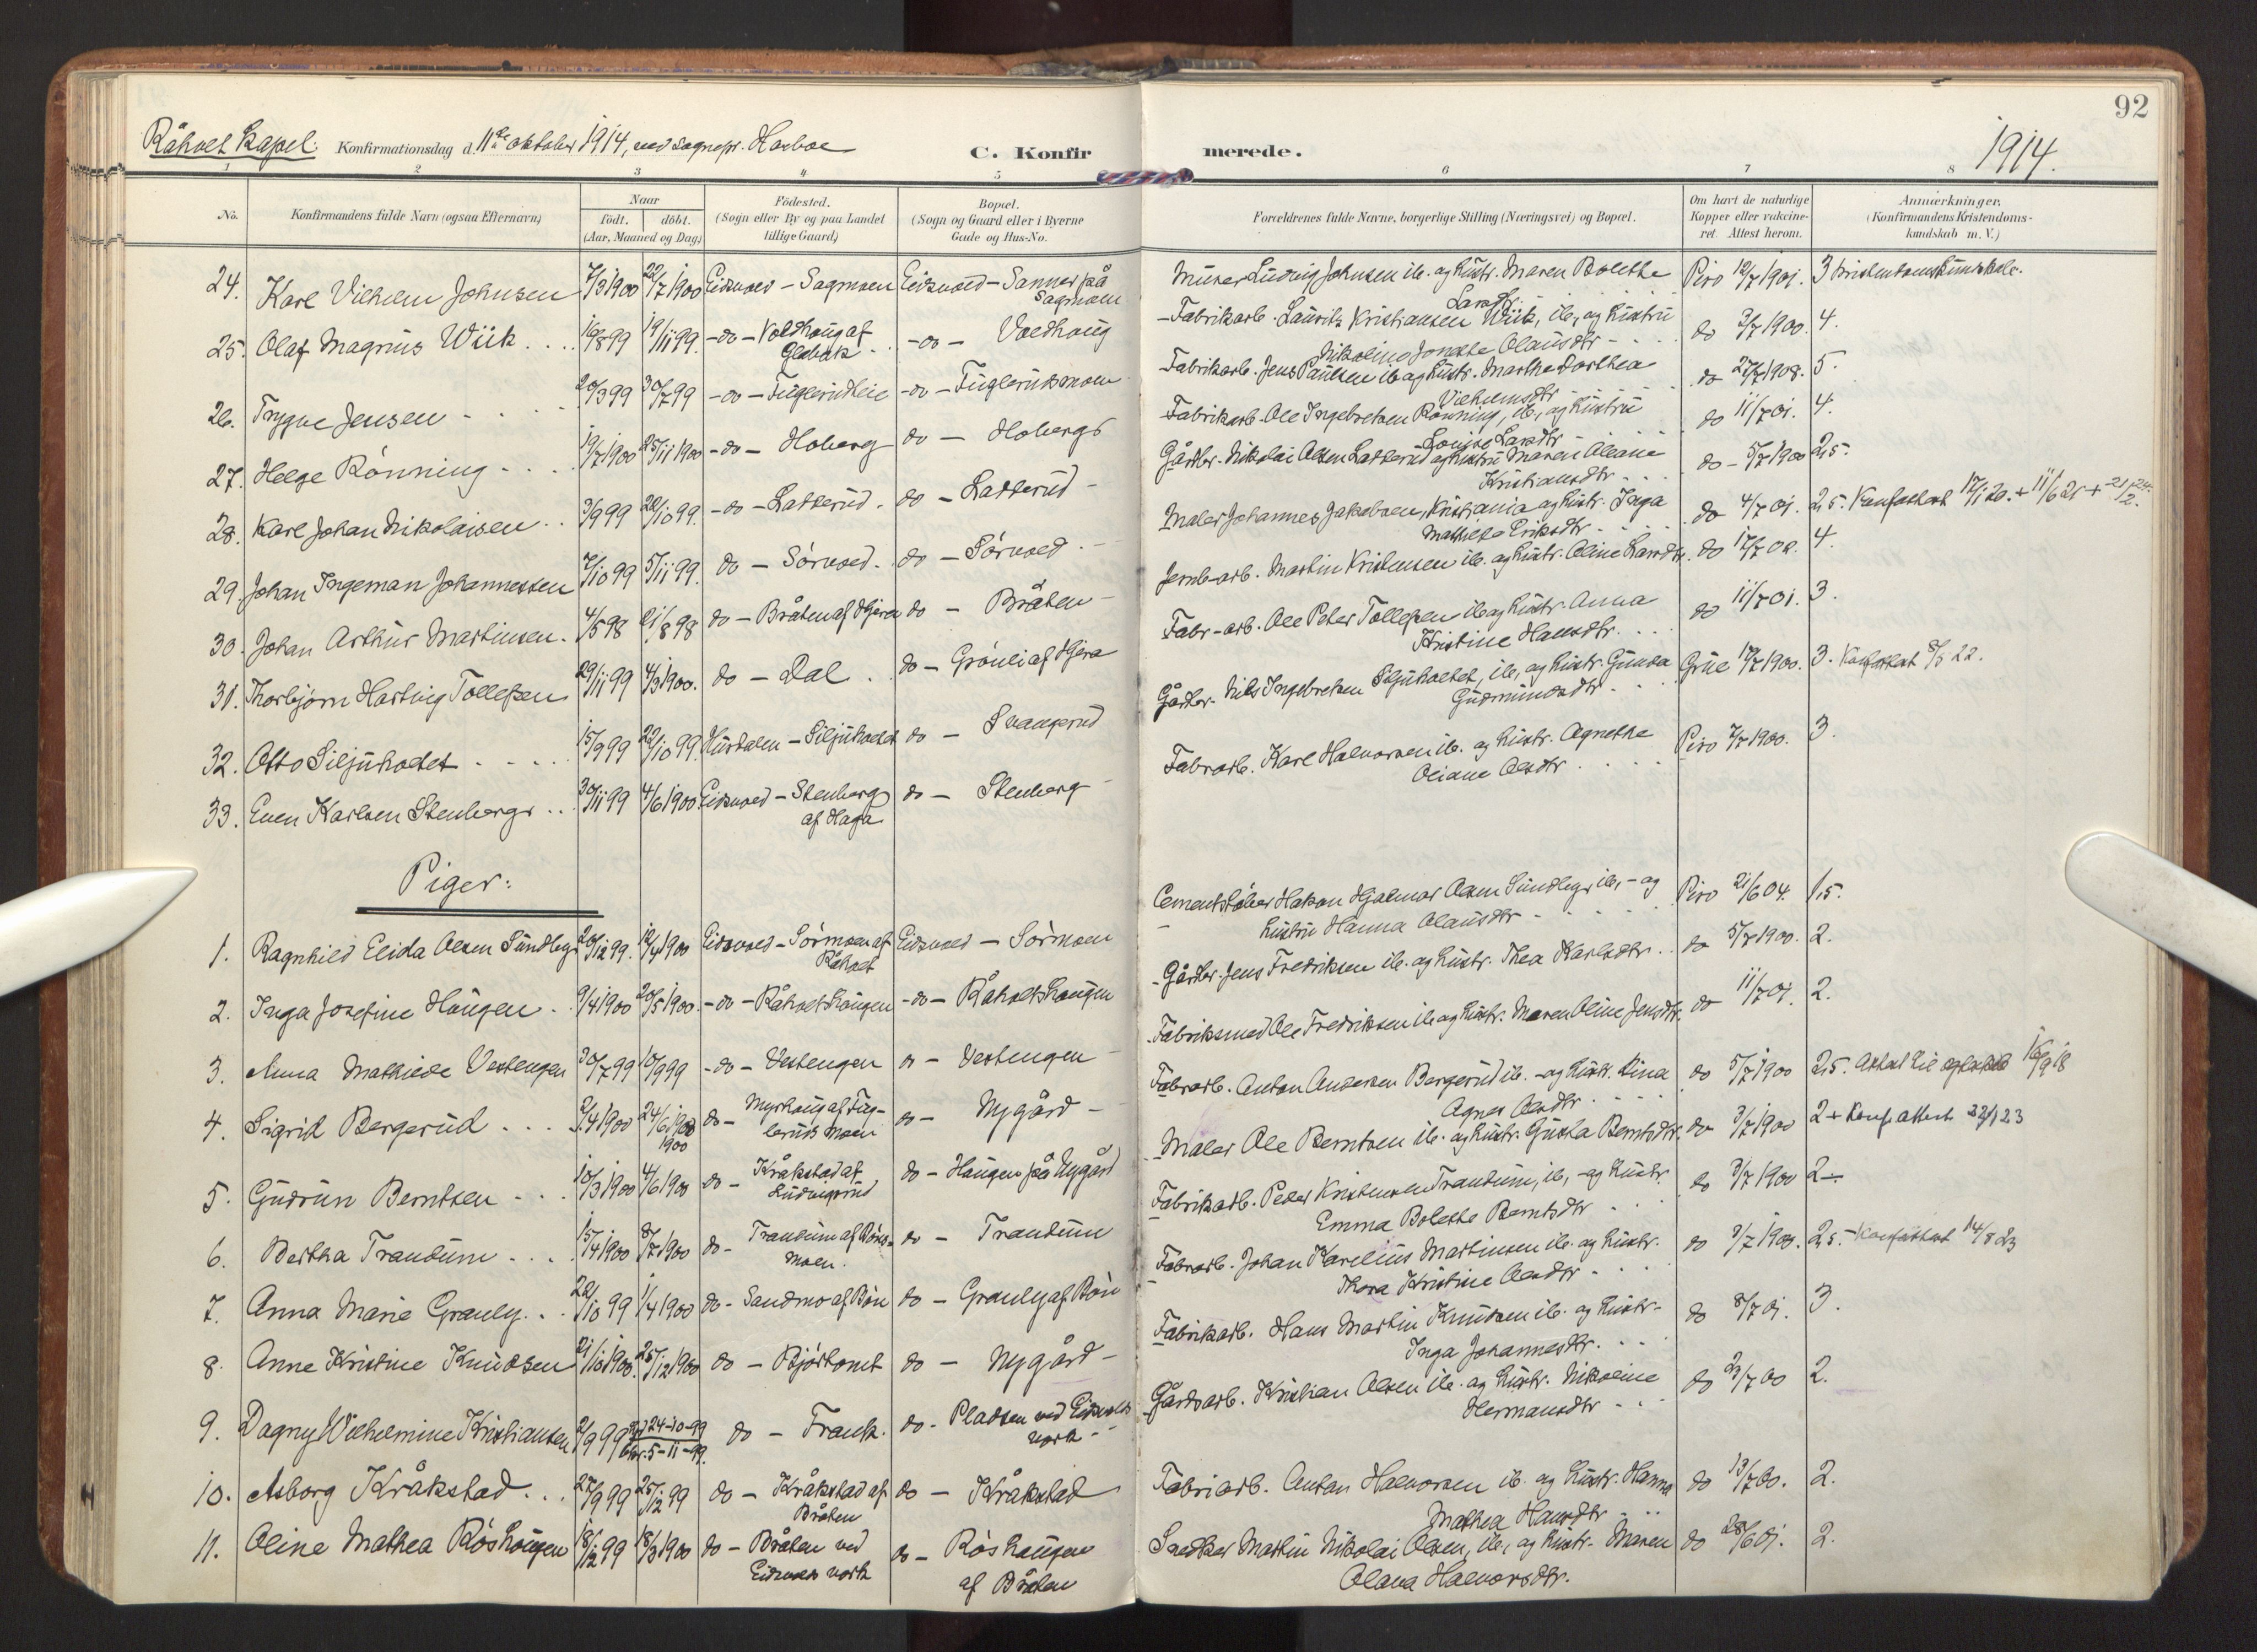 92
Råholt Kapel. Konfirmationsdag d. 11te oktober 1914, ved sognepr. Harboe
C. Konfirmerede.
1914.
1 2 3 4 5 6 7 8
No. Konfirmandens fulde Navn (ogsaa Efternavn) Naar födt. döbt. (Aar, Maaned og Dag) Födested. (Sogn eller By og paa Landet tillige Gaard) Bopæl. (Sogn og Gaard eller i Byerne Gade og Hus-No. Forældrenes fulde Navne, borgerlige Stilling (Næringsvei) og Bopæl. Om havt de naturlige Kopper eller vaccineret. Attest herom. Anmærkninger. (Konfirmandens Kristendomskundskab m. V.)
24. Karl Vilhelm Johnsen 7/3 1900 22/7 1900 Eidsvold - Sagmoen Eidsvold - Sannes på Sagmoen Murer Ludvig Johnsen ib. og hustr. Maren Bolethe Larsdtr. Piro 12/7 1901. 3 kristendomskundskab.
25. Olaf Magnus Wiik 16/8 99 19/11 99. -do- Voldhaug af Glabak -do- Voldhaug Fabrikarb. Lauritz Kristiansen Wiik, ib., og hustru Nikoline Jonette Olausdtr do 3/7 1900. 4.
26. Trygve Jensen 20/3 99 30/7 99 -do- Fuglerudleie -do- Fuglerudmoen Fabrikarb. Jens Paulsen ib og hustr. Marthe Dorthea Vilhelmsdtr do 27/7 1908. 5.
27. Helge Rönning 19/7 1900 25/11 1900 -do- Hoberg do - Hobergs Fabrikarb. Ole Ingebretsen Rönning, ib., og hustru Louise Larsdtr do 11/7 01. 4.
28. Karl Johan Nikolaisen 3/9 99 22/10 99. -do- Latterud. do - Latterud - Gårdbr. Nikolai Olsen Latterud og hustru Maren Oliane Kristiansdtr do - 5/7 1900 2,5.
29. Johan Ingeman Johannessen 7/10 99 5/11 99. do - Sörvold. do - Sörvold. Maler Johannes Jakobsen, Kristiania og hustr. Inga Mathilde Eriksdtr do 4/7 01. 2,5. Konfattest 17/1 20. + 11/6 21 + 21/2. 24.
30. Johan Arthur Martinsen. 4/5 98 21/8 98 do - Bråten af Gjera do - Bråten Jernb-arb. Martin Kristensen ib. og hustr. Oline Larsdtr. do 17/7 02. 4.
31. Thorbjörn Hartvig Tollefsen 29/11 99 4/3 1900. do - Dal. do - Grönli af Gjera Fabr-arb. Ole Peter Tollefsen ib og hustr. Anna Kristine Hansdtr. do 11/7 01. 3.
32. Otto Siljuholtet 15/9 99 22/10 99. Hurdalen - Siljuholtet do - Svangerud Gårdbr. Nils Ingebretsen Siljuholtet, ib., og hustr. Gunda Gudmundsdtr Grue 17/7 1900. 3. Konfattest 8/5 22.
33. Even Karlsen Stenberg 30/11 99 4/6 1900 Eidsvold - Stenberg af Haga do - Stenberg Fabrarb. Karl Halvorsen ib. og hustr. Agnethe Oliane Olsdtr Piro 7/7 1900. 3.
Piger:
1. Ragnhild Elida Olsen Sundbye 20/12 99. 12/4 1900 Eidsvold - Sörmoen af Råholt Eidsvold - Sörmoen Cementstöber Hakon Hjalmar Olsen Sundbye, ib., - og hustru Hanna Olausdtr Piro 21/6 04. 1,5.
2. Inga Josefine Haugen. 9/4 1900 20/5 1900. -do- Råholthaugen -do- Råholthaugen Gårdbr. Jens Fredriksen ib. og hustr. Thea Karlsdtr. do 5/7 1900. 2.
3. Anna Mathilde Vestengen 30/7 99 10/9 99 -do- Vestengen do - Vestengen Fabriksmed Ole Fredriksen ib og hustr. Maren Oline Jensdtr. do 11/7 01. 2.
4. Sigrid Bergerud 2/4 1900 24/6 1900 1900 do - Myrhaug af Fuglerudmoen do - Nygård - Fabrarb. Anton Andersen Bergerud ib. - og hustr. Lina Agnes Olsdtr do 5/7 1900 2,5. Attest til 16/9 18
5. Gudrun Berntsen 10/3 1900 4/6 1900 do - Kråkstad af Ludvigsrud do - Haugen på Nygård Maler Ole Berntsen ib. og hustr. Gusta Berntsdtr. do 3/7 1900 2 + Konf. attest 22/1 23
6. Bertha Trandum 15/4 1900 8/7 1900 do - Trandum af Rönsmoen. do - Trandum Fabrikarb. Peder Kristensen Trandum, ib., - og hustr. Emma Bolethe Berntsdtr do 3/7 1900 2 -
7. Anna Marie Granly. 22/10 99 1/4 1900 do - Sandmo af Bön do - Granly af Bön Fabrarb. Johan Karelius Martinsen ib. og hustr. Thora Kristine Olsdtr do 3/7 1900. 2,5. - Konfattest 14/8 23
8. Anne Kristine Knudsen 21/10 1900. 25/12 1900 do - Björtomt do - Nygård - Fabrikarb. Hans Martin Knudsen ib. og hustr. Inga Johannesdtr. do 8/7 01. 3.
9. Dagny Wilhelmine Kristiansen 2/9 99 24-10-99 5-11-99. do - Frank. do - Pladsen ved Eidsvolds værk - Gårdsarb. Kristian Olsen ib. og hustr. Nikoline Hermansdtr do 2/7 00 2.
10. Asborg Kråkstad. 27/9 99 25/12 99 do - Kråkstad af Bråten do - Kråkstad Fabriarb. Anton Halvorsen ib. og hustr. Hanna Mathea Hansdtr do 13/7 00. 2.
11. Oline Mathea Röshaugen 18/12 99 18/3 1900 do - Bråten ved Eidsvolds værk do - Röshaugen af Bråten Snedker Martin Nikolai Olsen, ib., og hustr. Maren Olava Halvorsdtr. do 28/6 01. 2.